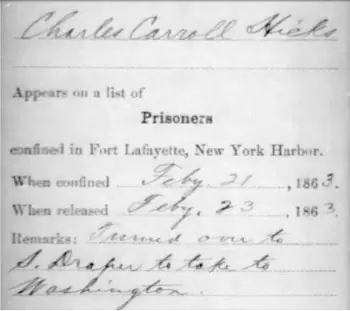 Charles Carroll Hicks
Appears on a list of
Prisoners
confined in Fort Lafayette, New York Harbor.
When confined Feby. 21, 1863.
When released Feby. 23, 1863.
Remarks: Turned over to
S. Draper to take to
Washington.